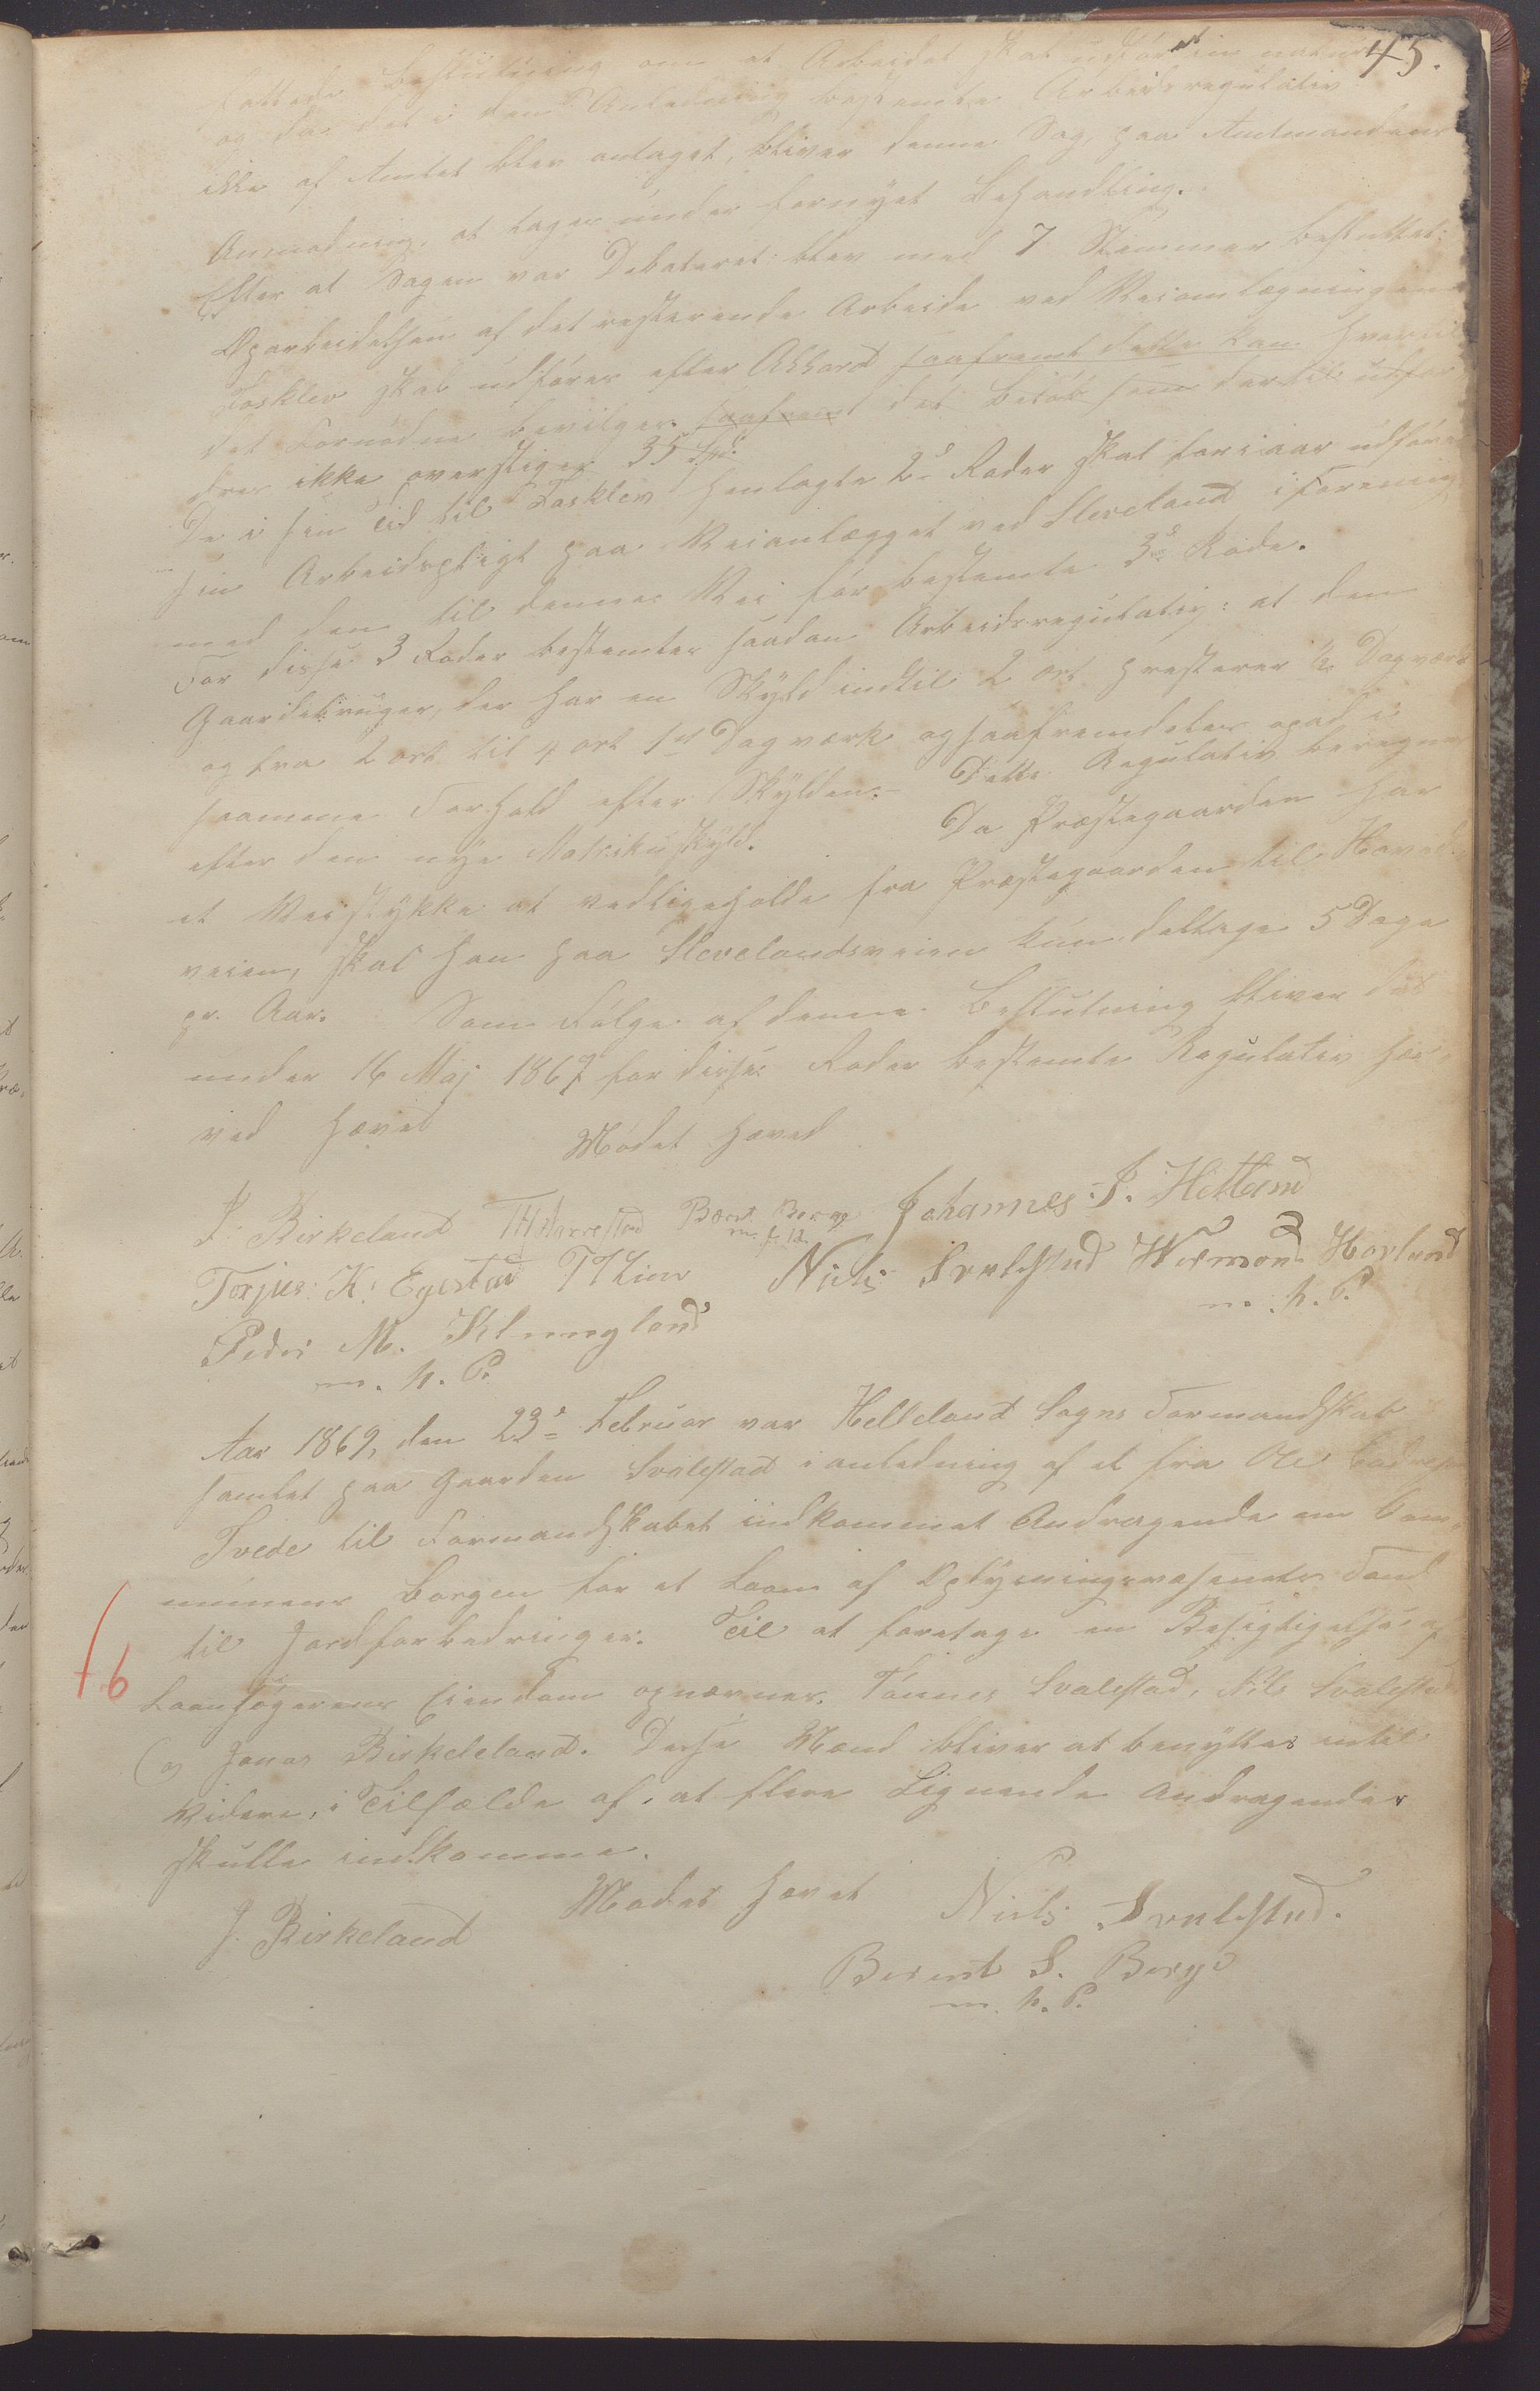 45.
fattede Beslutning om at Arbeidet skal udføres in natura
og da det i den Anledning bestemte Arbeidsregulativ
ikke af Amtet blev antaget, bliver denne Sag, paa Amtmandens
Anmodning, at tage under fornyet Behandling.
Efter at Sagen var Debateret blev med 7 Stemmer besluttet:
Oparbeidelsen af det resterende Arbeide ved Veiomlægningen
Fosklev skal udføres efter Akkord saafremt dette kan hvortil
det Fornødne bevilges. saafremt det Beløb som dertil udfor
dres ikke overstiger 35 Spd.
De i sin Tid til Fosklev henlagte 2de Roder skal for iaar udføre
sin Arbeidspligt paa Veianlægget ved Sleveland i Forening
med den til denne Vei før bestemte 3die Rode.
For disse 3 Roder bestemtes saadan Arbeidsregulativ: at den
Gaardebruger, der har en Skyld indtil 2 ort presterer ½ Dagværk
og fra 2 ort til 4 ort 1et Dagværk og saafremdeles opad i
samme Forhold efter Skylden.- Dette Regulativ beregnes
efter den nye Matrikulskyld. Da Præstegaarden har
et Veistykke at vedligeholde fra Præstegaarden til Hoved-
veien, skal han paa Slevelandsveien kun deltage 5 Dage
pr. Aar. Som Følge af denne Beslutning bliver det
under 16 Maj 1867 for disse Roder bestemte Regulativ her-
ved hævet
Mødet hæved
J. Birkeland Bernt Berge Johannes J. Hetland
m. p. P.
Torjus K. Egestad Niels Svalestad Wermond Hovland
m. h. P.
Peder M. Klungland
m. h. P.
Aar 1869, den 23de Februar var Helleland Sogns Formandskab
samlet paa Gaarden Svalestad i anledning af et fra Ole
Tvede til Formandskabet indkommet Andragende om Com-
munens Borgen for et Laan af Oplysningsvæsenets Fond
til Jordforbedringer. Til at foretage en Besigtigelse af
16
Laansøgerens Eiendom opnævnes. Tønnes Svalestad, Nils Svalestad
og Jonas Birkeland. Disse Mænd bliver at benyttes indtil
Videre, i Tilfælde af, at flere Lignende Andragender
skulle indkomme.
Mødet hævet
J. Birkeland Niels Svalestad.
Berent S. Berge
m. h. P.